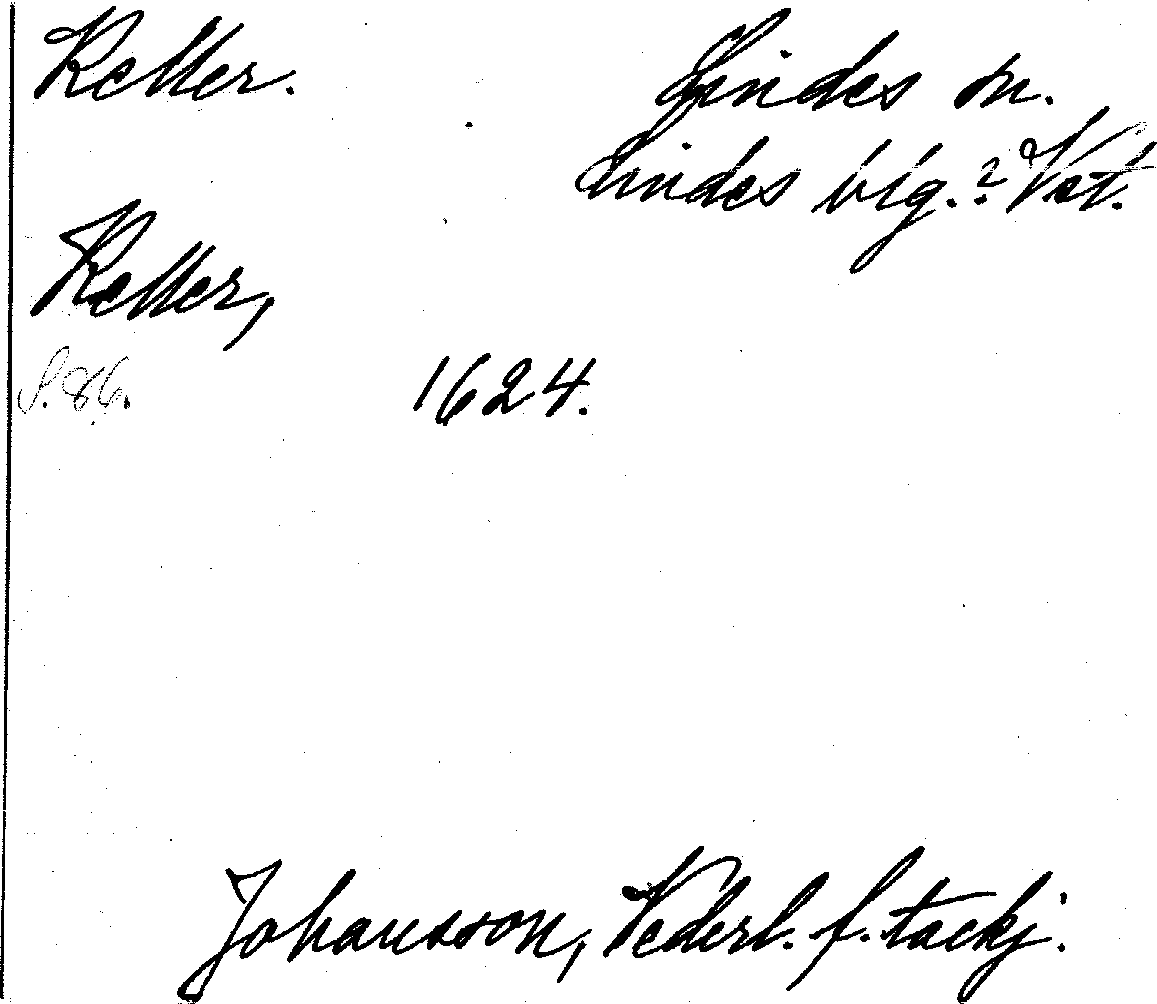 Keller. Lindes sn.
Lindes blg.? Vst.
Keller,
S. 86. 1624.
Johansson, Vederl. f. tackj.